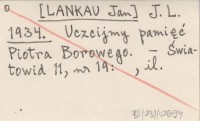 o [LANKAU Jan] J. L.
1934. Uczcijmy pamięć
Piotra Borowego. – Świa-
towid 11, nr 19: , il.